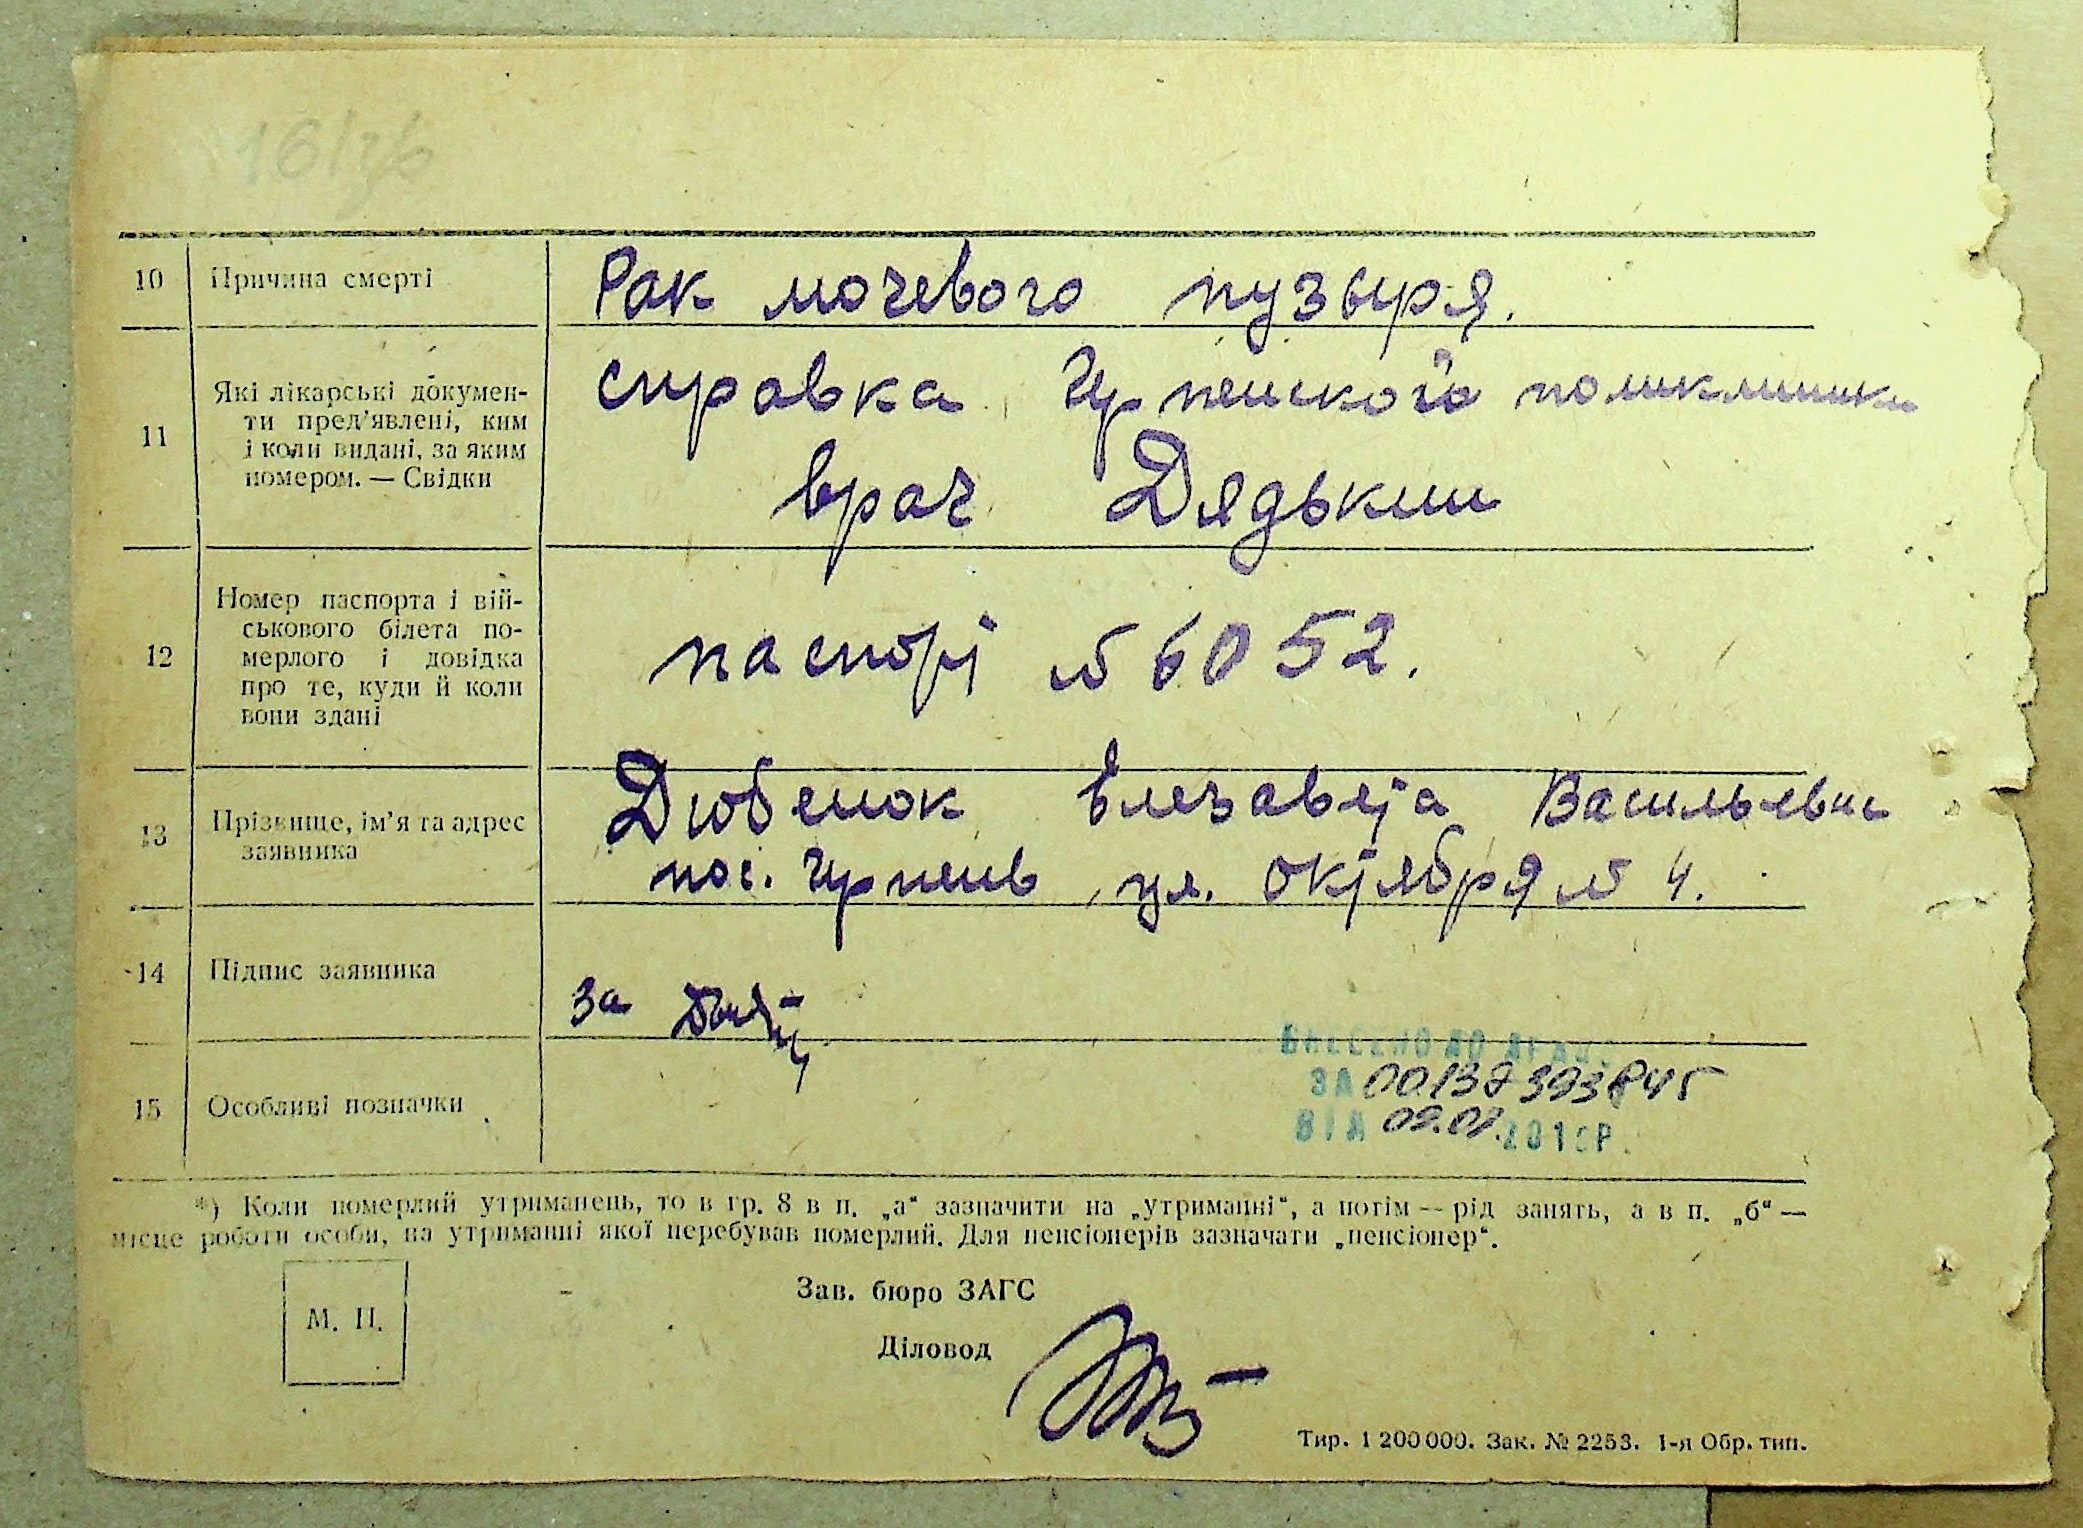 10 Причина смерті Рак мочевого пузыря.
11 Які лікарські докумен-
ти пред'явлені, ким
і коли видані, за яким
номером. — Свідки
справка Ирпенского поликлиники
врач Дядькин
12 Номер паспорта і вій-
ськового білета по-
мерлого і довідка
про те, куди й коли
вони здані
паспорт № 6052.
13 Прізвище, ім'я та адрес
заявника
Дюбенок Елезавета Васильевна
пос. Ирпень, ул. Октября № 4.
14 Підпис заявника
за
15 Особливі позначки
ВНЕСЕНО ДО ДРАЦС
ЗА 00137393845
ВІД 09.07.2015Р.
*) Коли померлий утриманець, то в гр. 8 в п. „а“ зазначити на „утриманні“, а потім — рід занять, а в п. „б“ —
місце роботи особи, на утриманні якої перебував померлий. Для пенсіонерів зазначати „пенсіонер“.
Зав. бюро ЗАГС
М. П.
Діловод
Тир. 1 200 000. Зак. № 2253. 1-я Обр. тип.